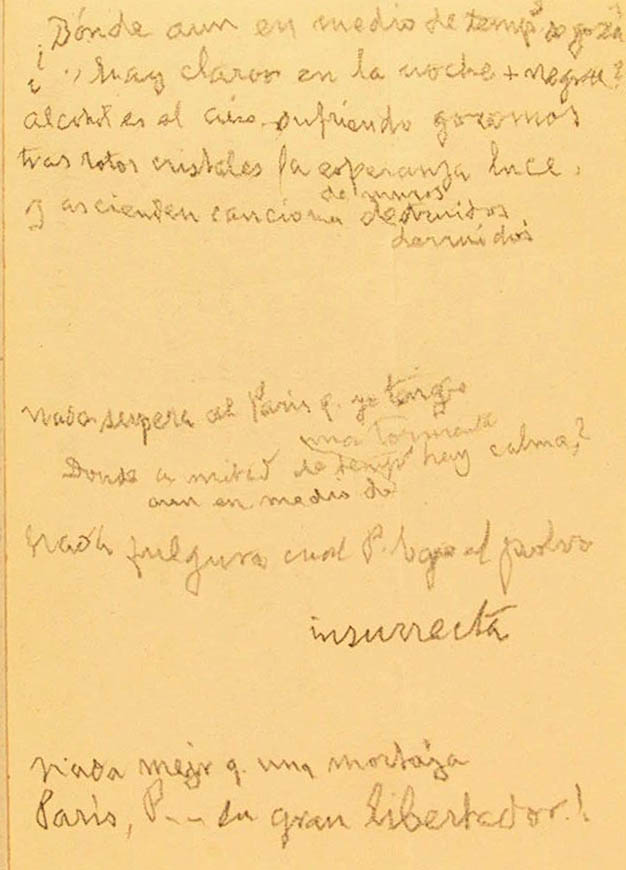 ¿Dónde aun en medio de temp.s se goza
¿ " hay claros en la noche + negra?
alcohol es el aire. sufriendo gozamos
tras rotos cristales la esperanza luce,
de muros
y ascienden canciones destruidos
derruidos
nada supera al París q. yo tengo
una tormenta
Donde a mitad de temp hay calma,?
aun en medio de
Nada fulgura cual P. bajo el polvo
insurrecta
Nada mejor q. una mortaja
París, P-- su gran libertador.!